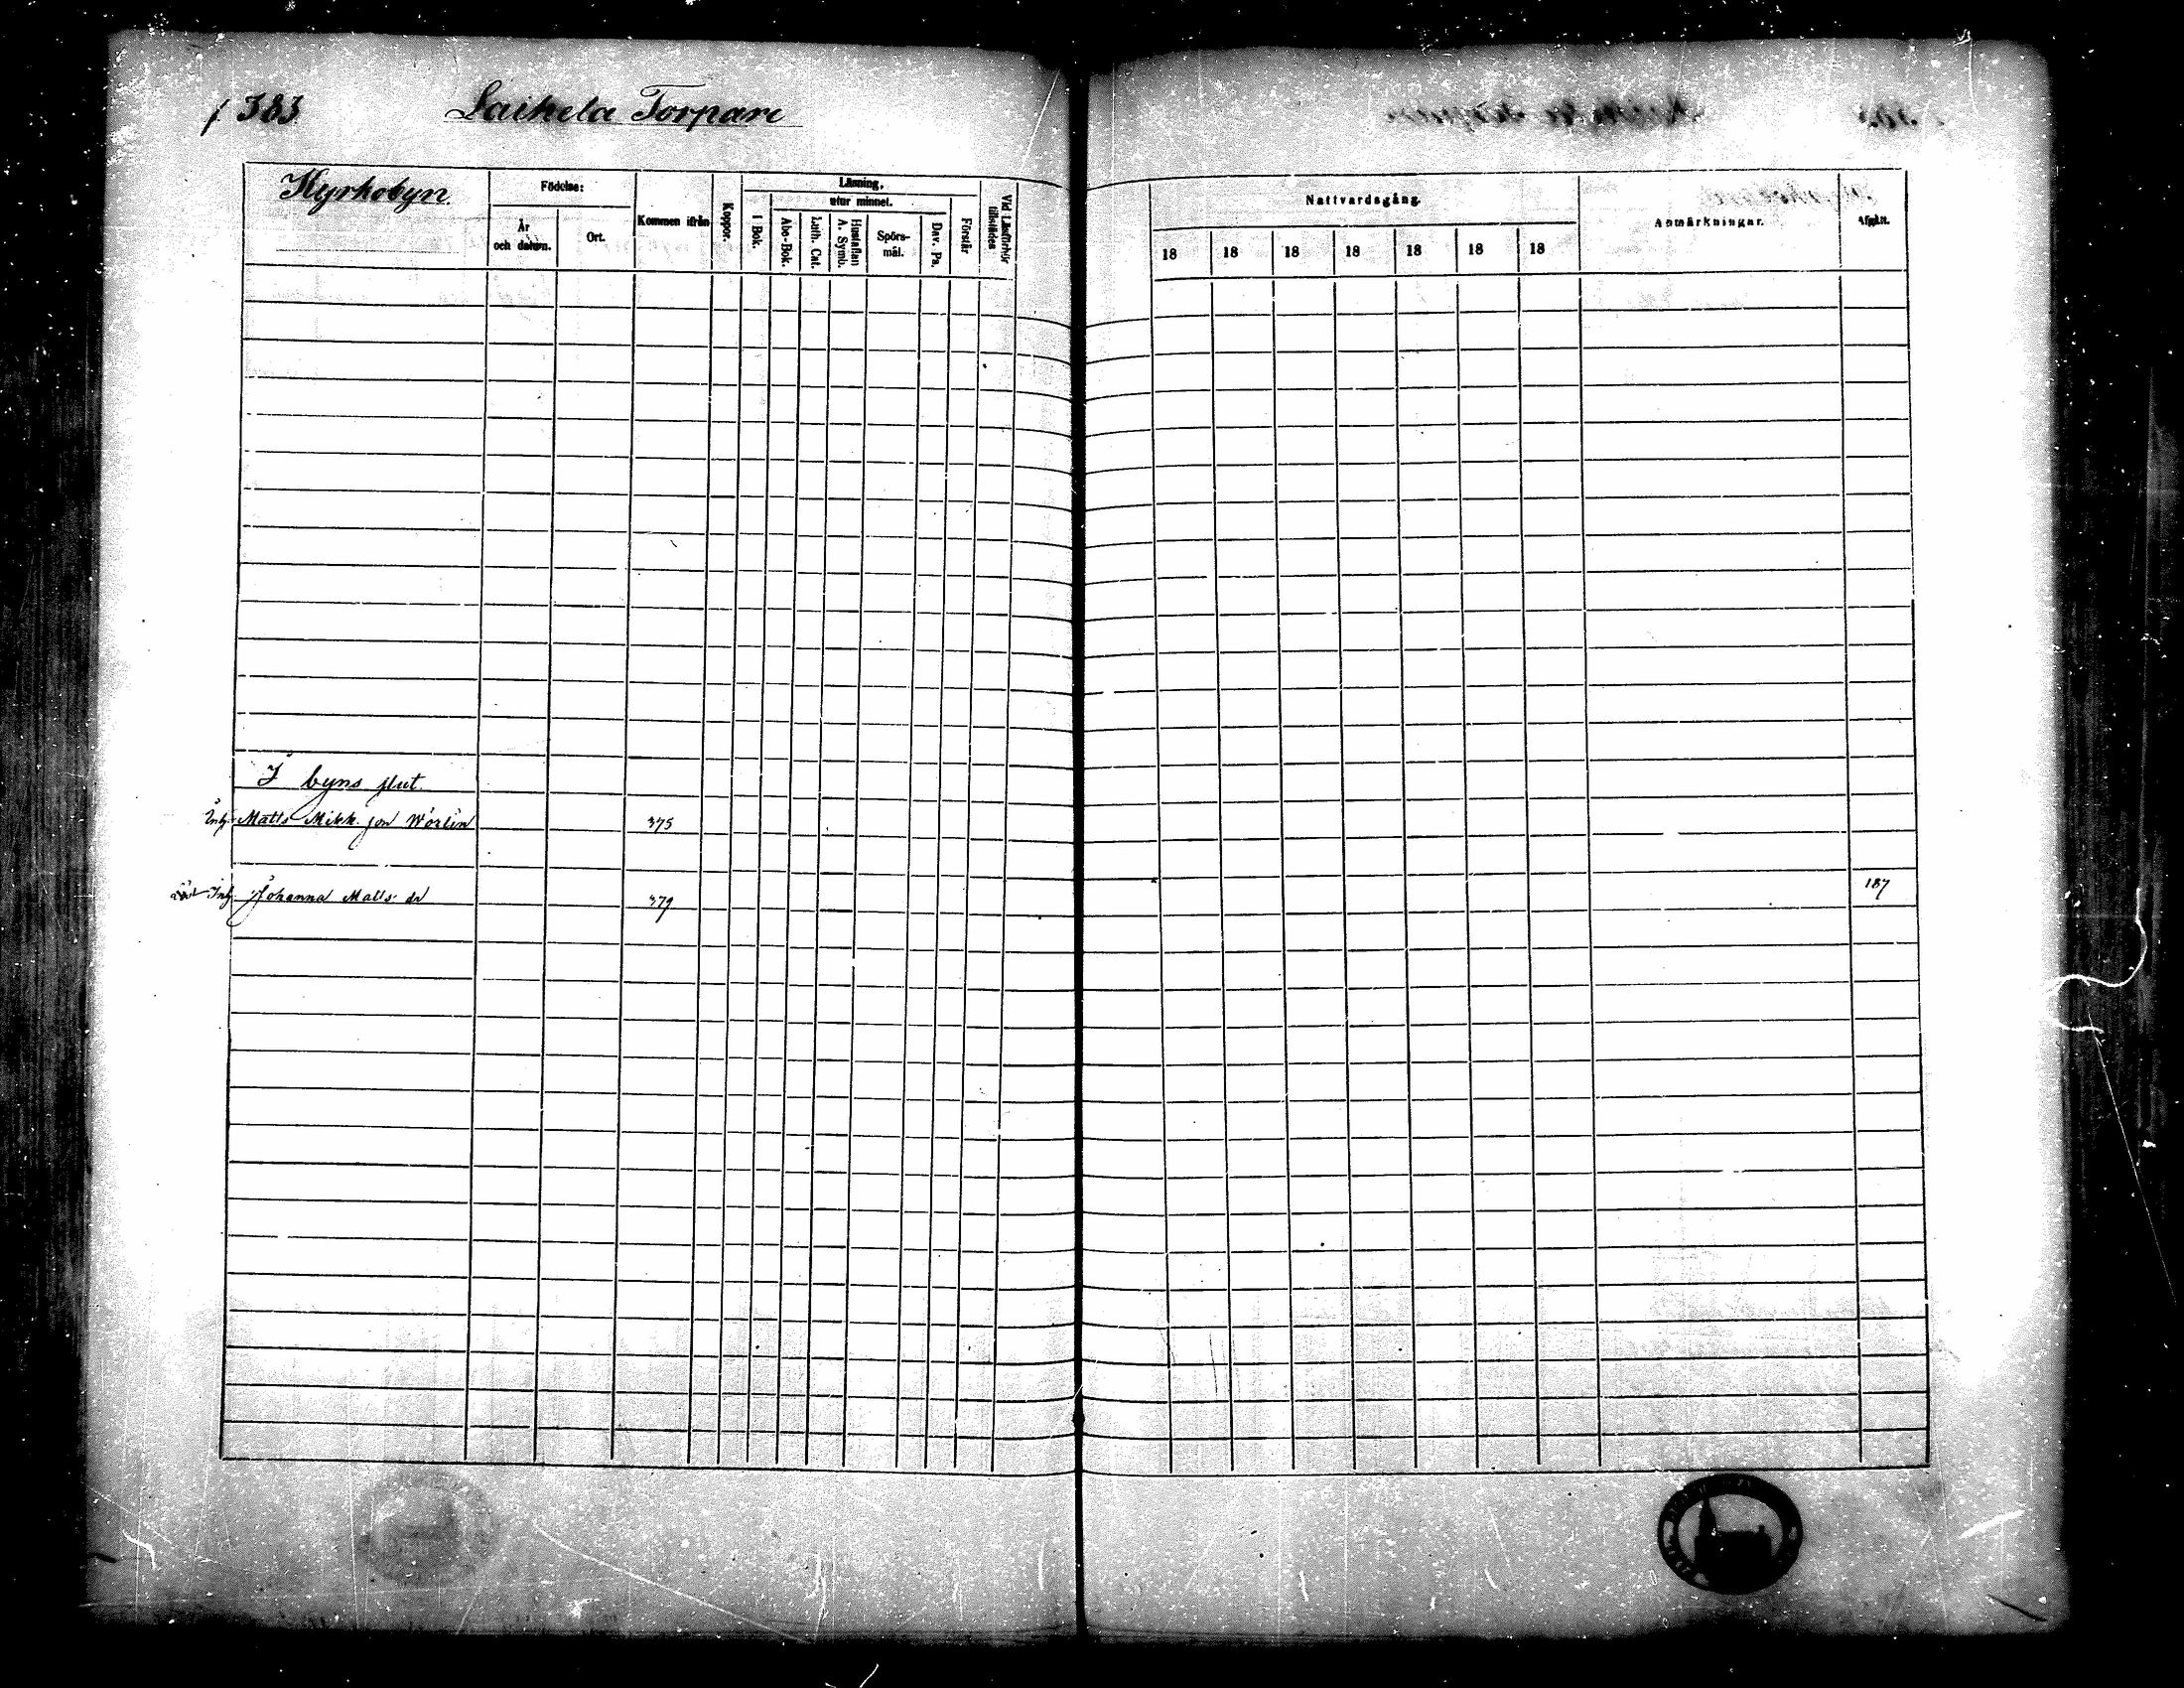 383
Laihela Torpare
Kyrkobyn.
Födelse:
År och datum.
Ort.
Kommen ifrån
Koppor.
Läsning,
utur minnet.
I Bok.
Abc-Bok.
Luth. Cat.
Hustaflan A. Symb.
Spörs-mål.
Dav. Ps.
Förstår
Vid Läseförhör tillstädes
Nattvardsgång.
18 18 18 18 18 18 18
Anmärkningar.
Afgått.
I byns slut.
Inh. Matts Mikk. son Wörlin 375
Inh. Johanna Matts dr 379 187